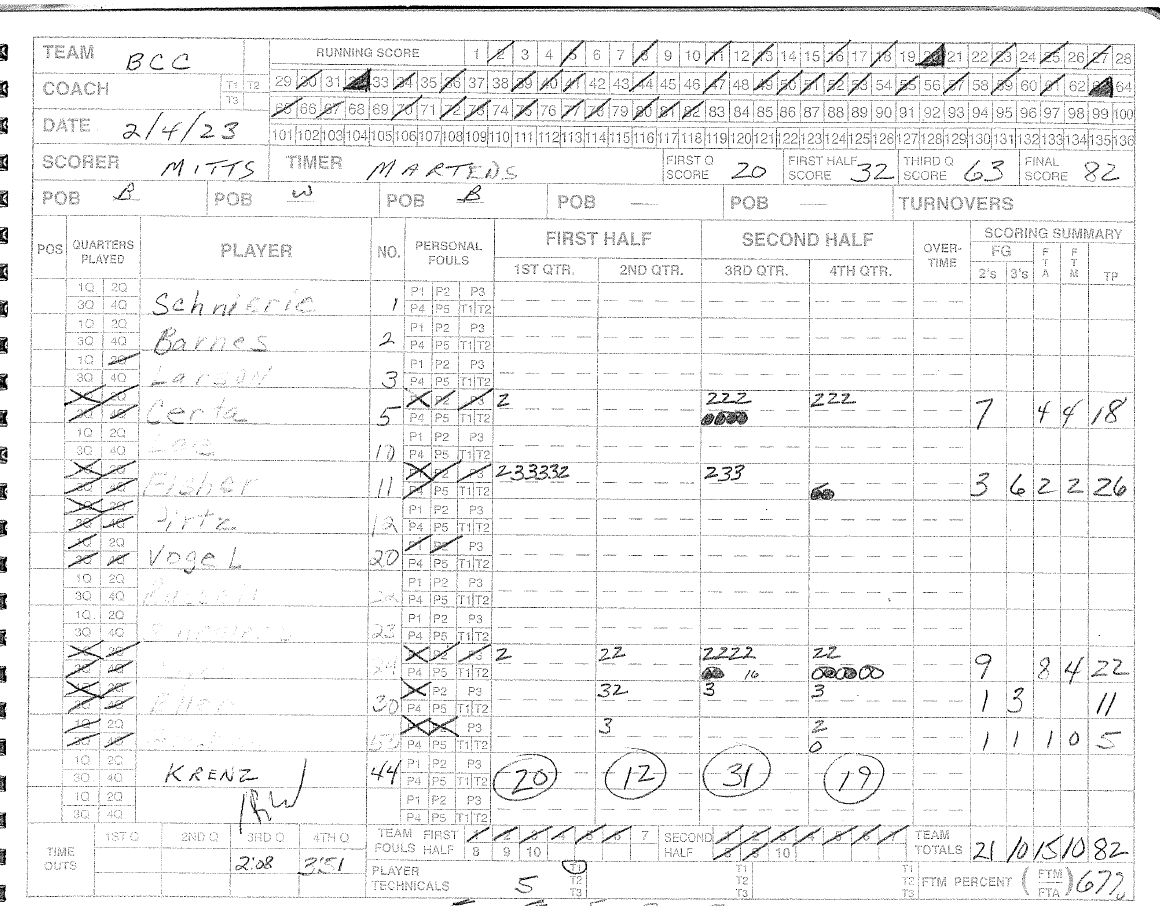 TEAM BCC
RUNNING SCORE 1 2 3 4 5 6 7 8 9 10 11 12 13 14 15 16 17 18 19 20 21 22 23 24 25 26 27 28
COACH T1 T2 T3
29 30 31 32 33 34 35 36 37 38 39 40 41 42 43 44 45 46 47 48 49 50 51 52 53 54 55 56 57 58 59 60 61 62 63 64
65 66 67 68 69 70 71 72 73 74 75 76 77 78 79 80 81 82 83 84 85 86 87 88 89 90 91 92 93 94 95 96 97 98 99 100
DATE 2/4/23
101 102 103 104 105 106 107 108 109 110 111 112 113 114 115 116 117 118 119 120 121 122 123 124 125 126 127 128 129 130 131 132 133 134 135 136
SCORER MITTS TIMER MARTENS FIRST Q SCORE 20 FIRST HALF SCORE 32 THIRD Q SCORE 63 FINAL SCORE 82
POB B POB W POB B POB — POB — TURNOVERS
POS QUARTERS PLAYED PLAYER NO. PERSONAL FOULS FIRST HALF SECOND HALF OVER-TIME SCORING SUMMARY
1ST QTR. 2ND QTR. 3RD QTR. 4TH QTR. FG 2's 3's FTA FTM TP
1Q 2Q 3Q 4Q Schnieric 1 P1 P2 P3 P4 P5 T1 T2
1Q 2Q 3Q 4Q Barnes 2 P1 P2 P3 P4 P5 T1 T2
1Q 2Q 3Q 4Q Larson 3 P1 P2 P3 P4 P5 T1 T2
Certa 5 P4 P5 T1 T2 2 222 222 7 4 4 18
1Q 2Q 3Q 4Q 10 P1 P2 P3 P4 P5 T1 T2
Fisher 11 P5 T1 T2 233332 233 3 6 2 2 26
12 P1 P2 P3 P4 P5 T1 T2
2Q Vogel 20 P3 P4 P5 T1 T2
1Q 2Q 3Q 4Q P1 P2 P3 P4 P5 T1 T2
1Q 2Q 3Q 4Q 23 P1 P2 P3 P4 P5 T1 T2
24 P4 P5 T1 T2 2 22 2222 16 22 00000 9 8 4 22
30 P2 P3 P4 P5 T1 T2 32 3 3 1 3 11
2Q P3 P4 P5 T1 T2 3 2 0 1 1 1 0 5
1Q 2Q 3Q 4Q KRENZ 44 P1 P2 P3 P4 P5 T1 T2 20 12 31 19
1Q 2Q 3Q 4Q P1 P2 P3 P4 P5 T1 T2
TIME OUTS 1ST Q 2ND Q 3RD Q 4TH Q 2:08 3:51
TEAM FOULS FIRST HALF 1 2 3 4 5 6 7 8 9 10 SECOND HALF 1 2 3 4 5 6 7 8 9 10 TEAM TOTALS 21 10 15 10 82
PLAYER TECHNICALS 5 T1 T2 T3 T1 T2 T3 T1 T2 T3 FTM PERCENT (FTM FTA) 67%